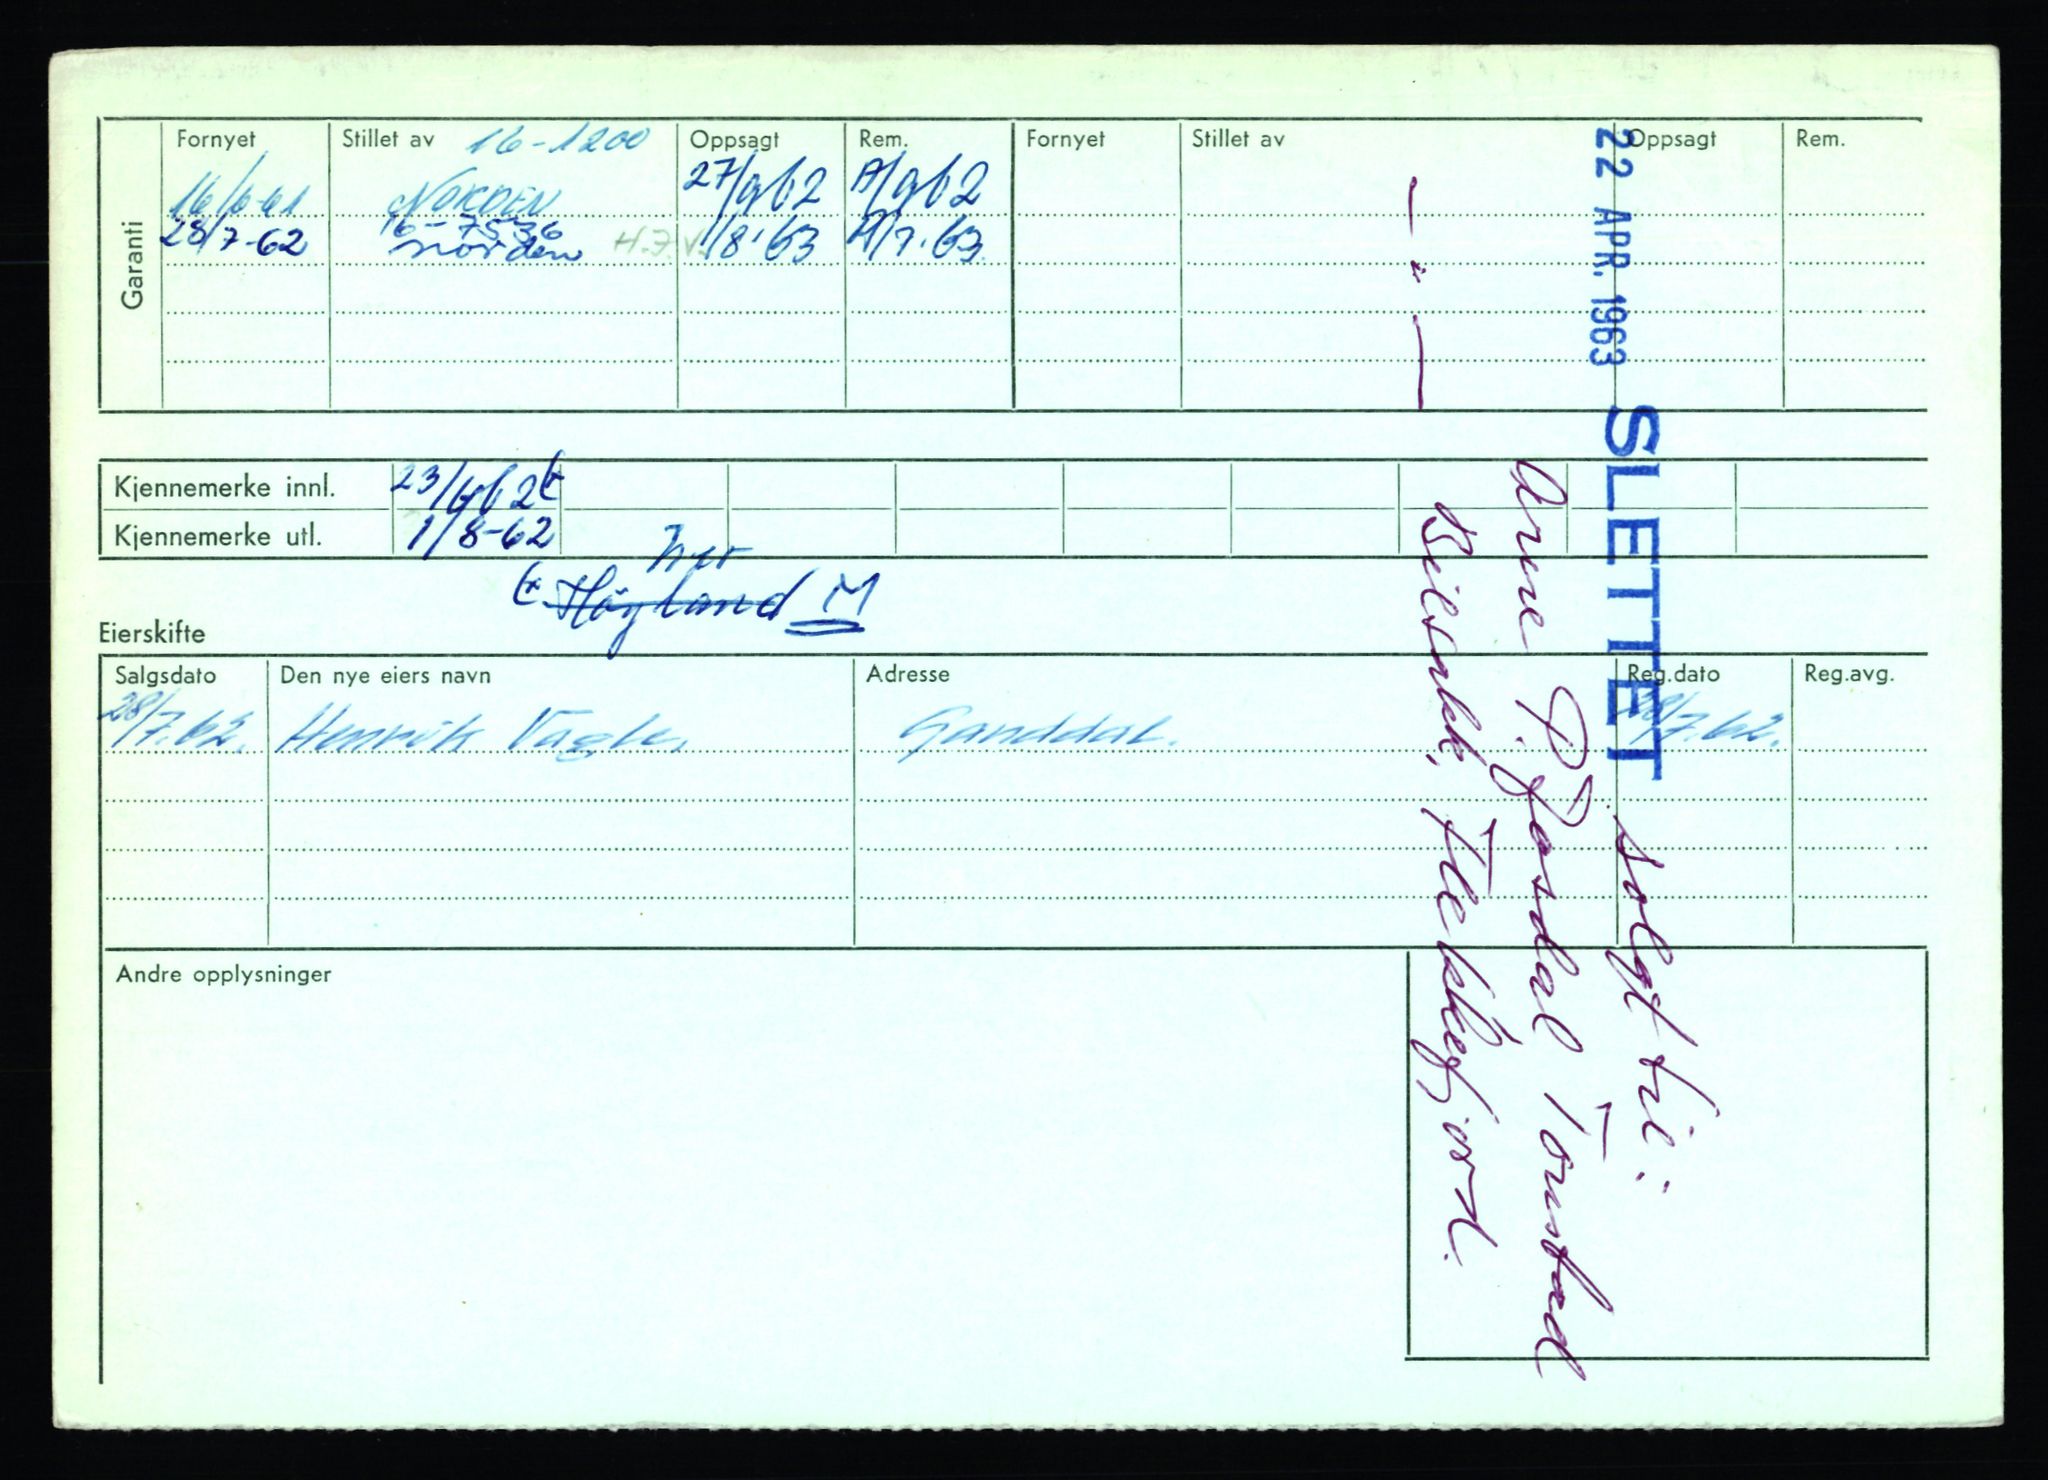 Garanti
Fornyet Stillet av 16-1200 Oppsagt Rem. Fornyet Stillet av Oppsagt Rem.
16/6-61 NORDEN 27/9 62 A/9 62
28/7-62 16-7536 Norden H.J.V. 1/8-63 A/7-63
Kjennemerke innl. 23/4 62
Kjennemerke utl. 1/8-62
Høgland M
Eierskifte
Salgsdato Den nye eiers navn Adresse Reg.dato Reg.avg.
28/7.62. Henrik Vagle, Ganddal. 28/7.62.
Andre opplysninger
22 APR. 1963 SLETTET
solgt til:
Arne P. Jøsdal Tonstad
Bilsakk. Flekkefjord.
— " —